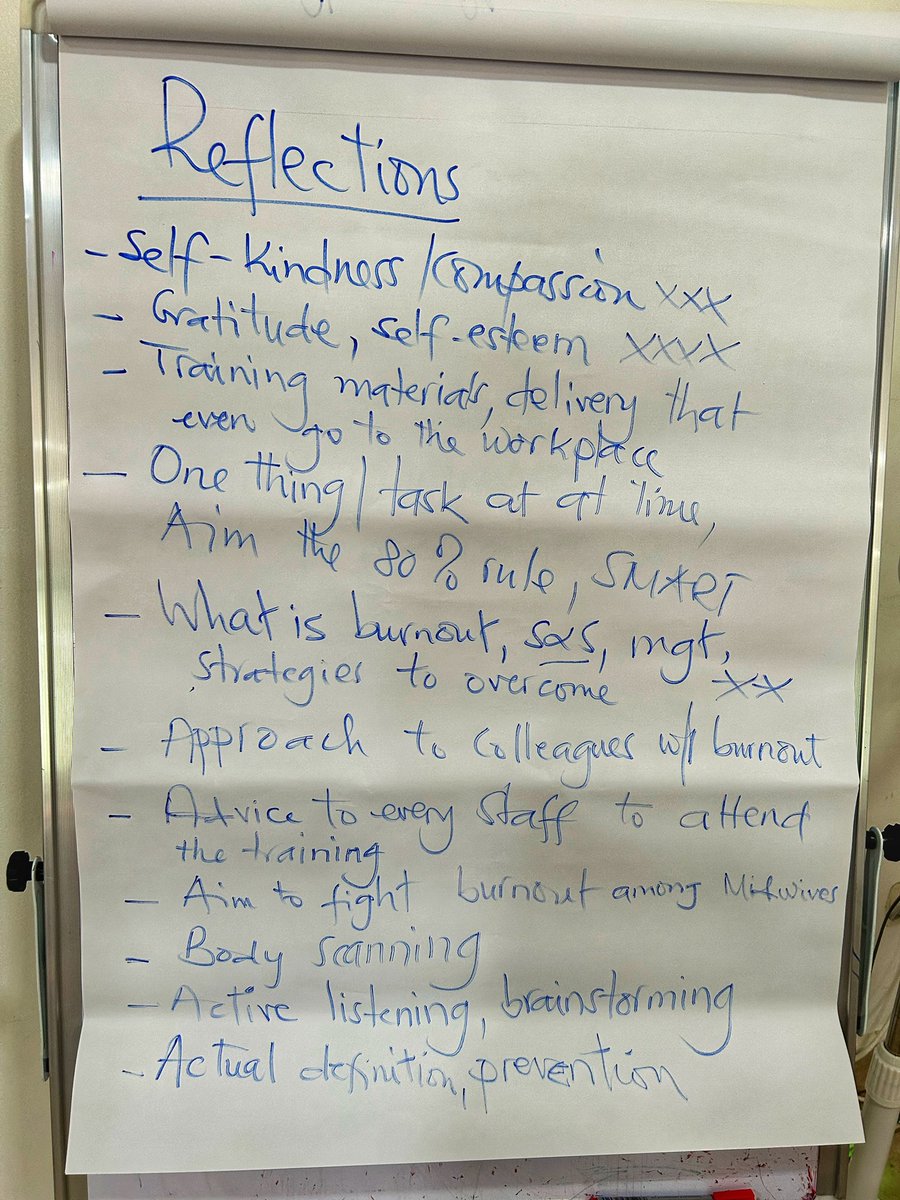 Reflections
- Self-Kindness/Compassion XXX
- Gratitude, self-esteem XXXX
- Training materials, delivery that
even go to the workplace
- One thing/task at at time,
Aim the 80% rule, SMART
- What is burnout, s&s, mgt,
strategies to overcome XX
- Approach to colleagues w/ burnout
- Advice to every staff to attend
the training
- Aim to fight burnout among Midwives
- Body scanning
- Active listening, brainstorming
- Actual definition, prevention